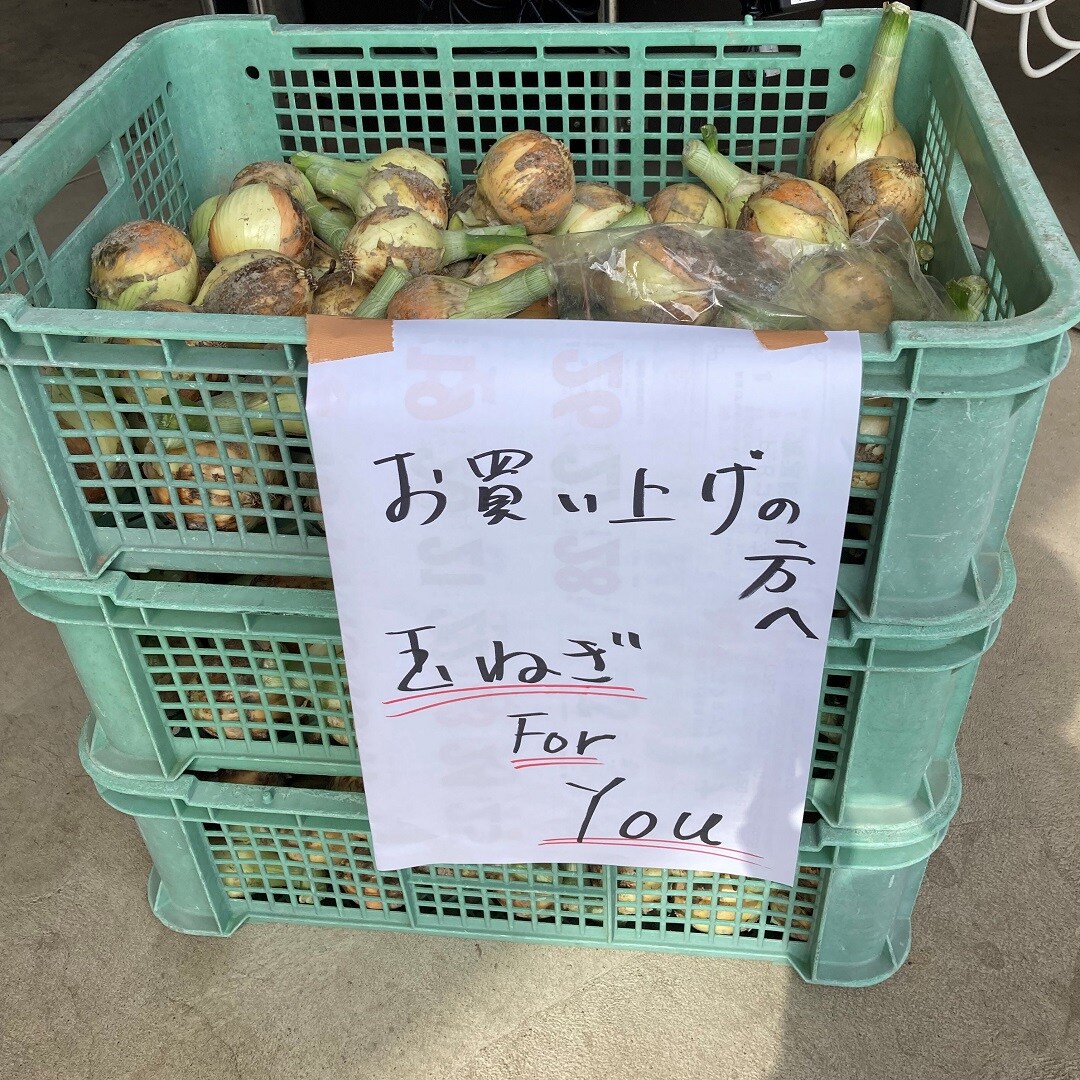 お買い上げの
方へ
玉ねぎ
For
You